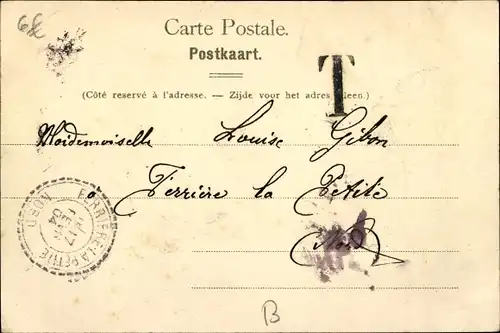 6£
Carte Postale.
Postkaart.
(Côté reservé à l'adresse. — Zijde voor het adres alleen.)
T
Moidemoiselle Louise Gibon
a Ferrière la Petite
Nord
FERRIERE-LA-PETITE
NORD
04
B